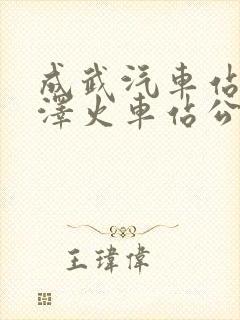 成武汽車佔
澤火車佔公
王瑋偉